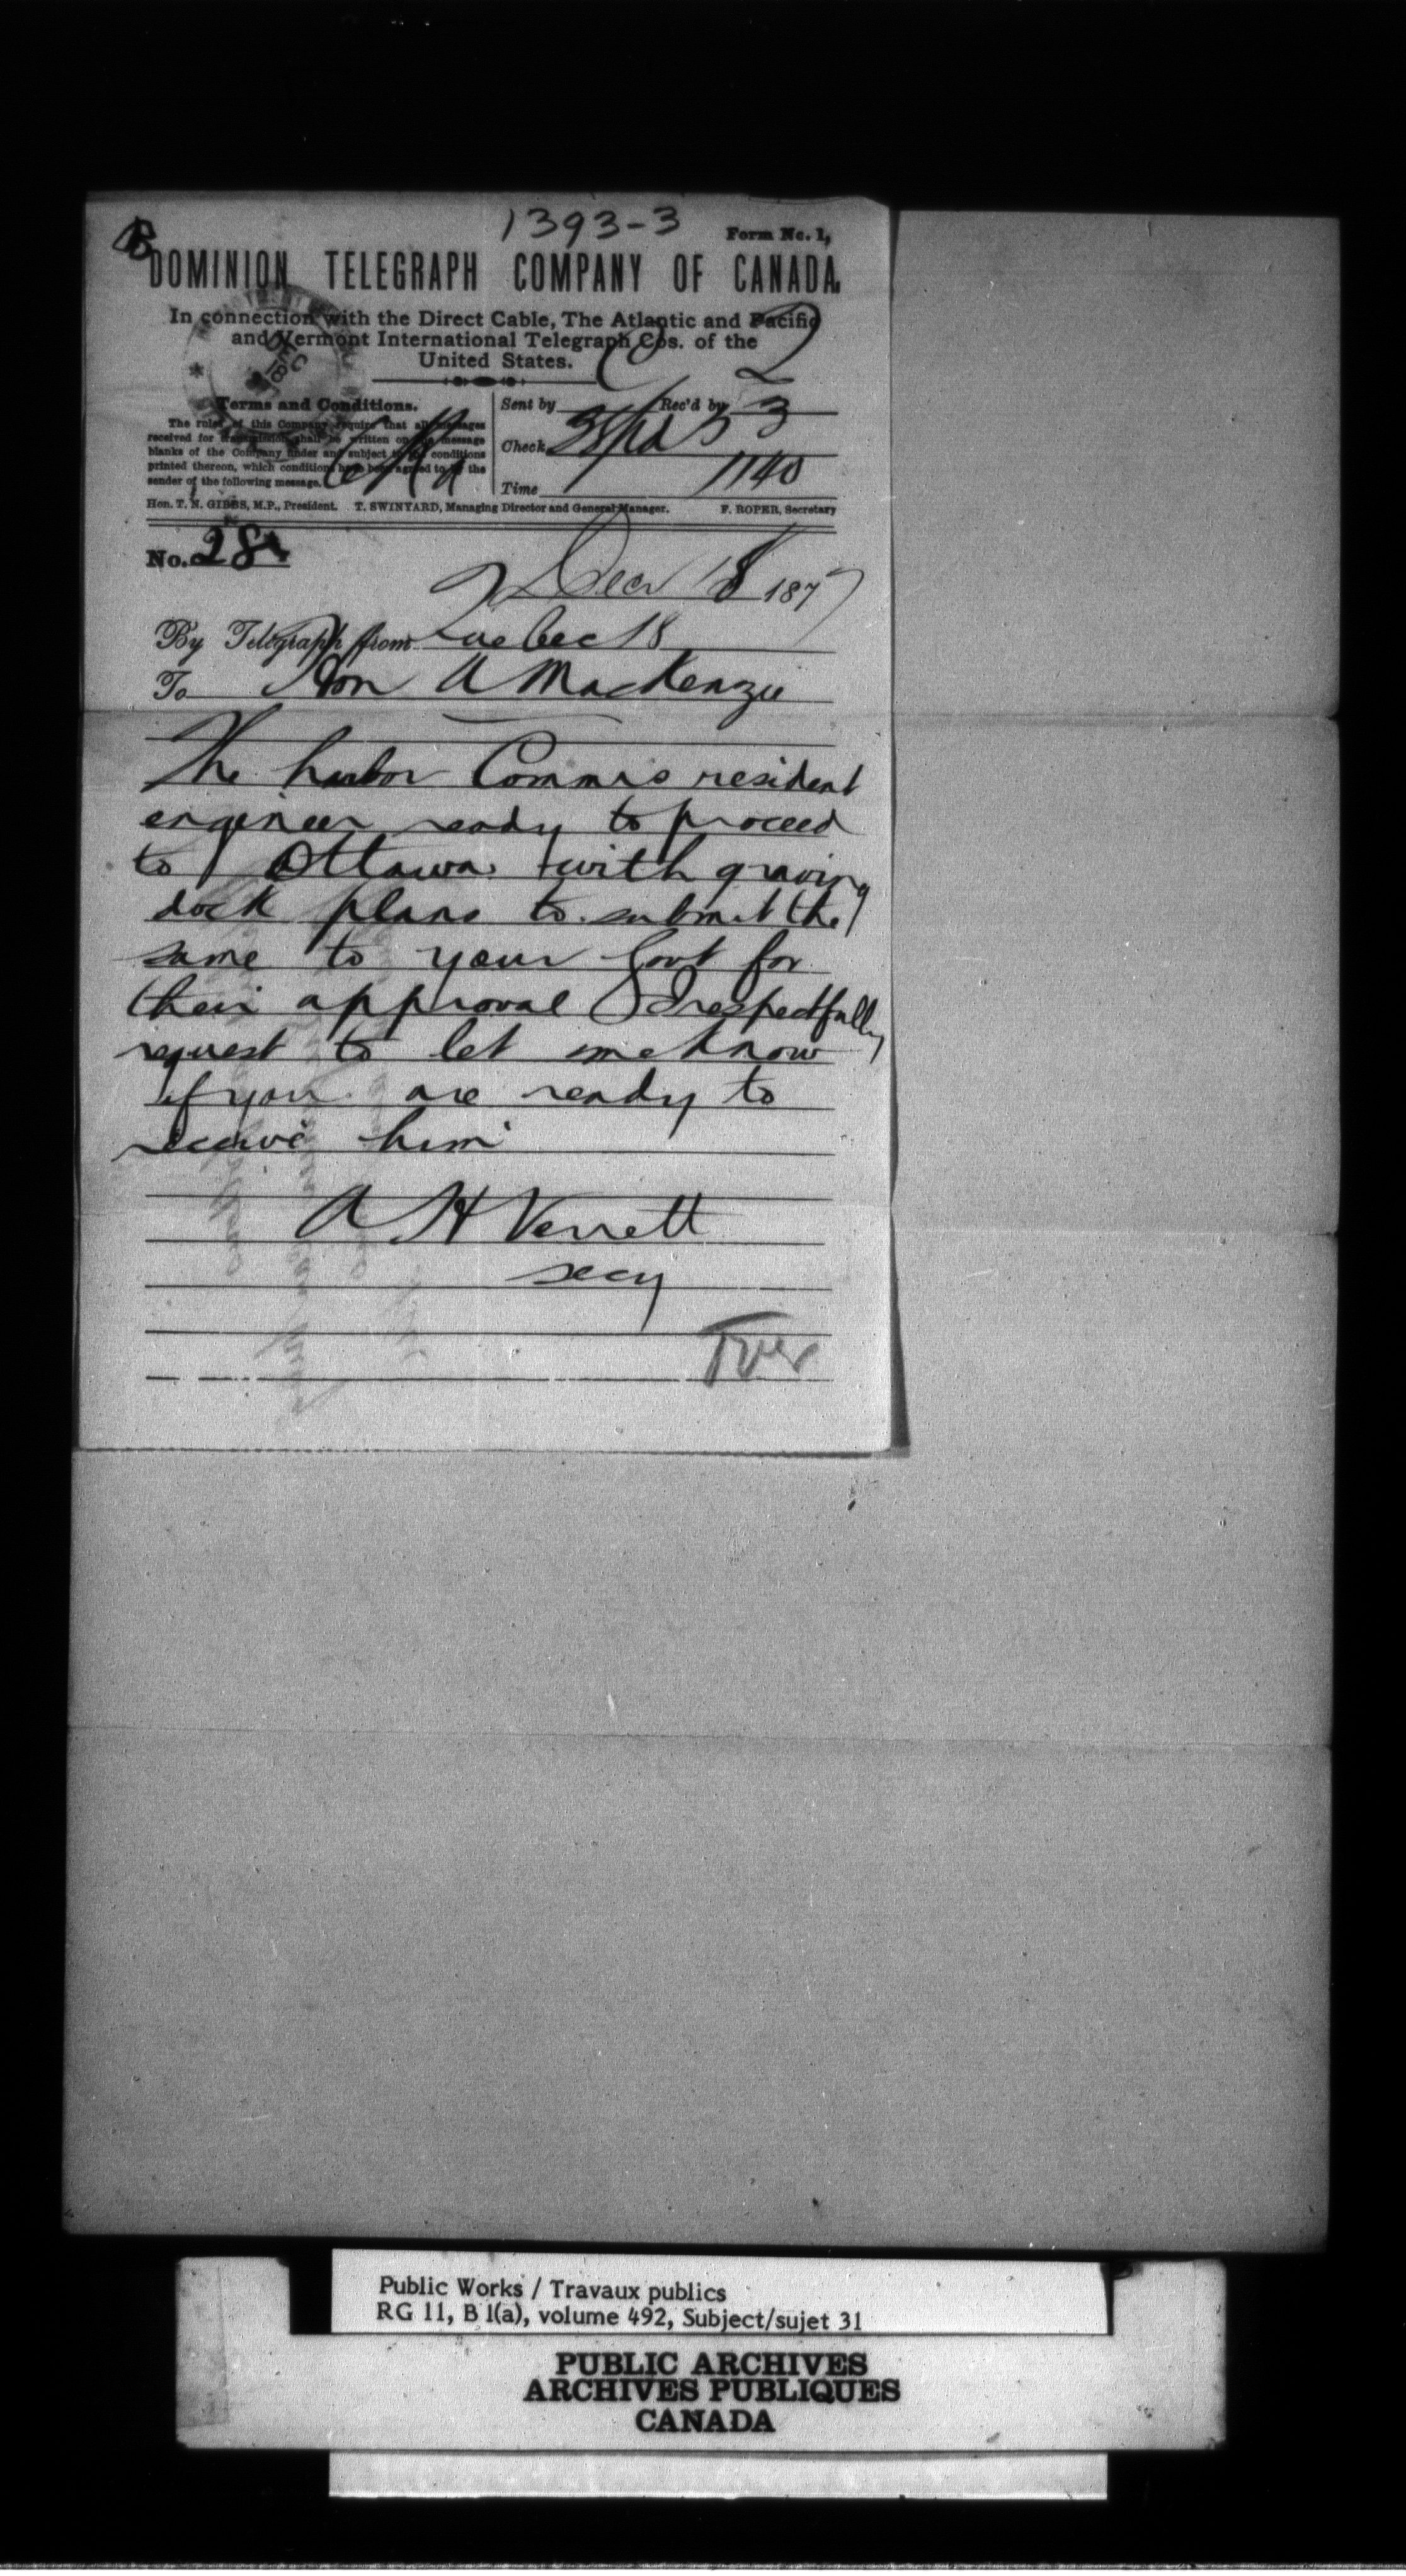 1393-3
Form No. 1,
DOMINION TELEGRAPH COMPANY OF CANADA.
In connection with the Direct Cable, The Atlantic and Pacific
and Vermont International Telegraph Cos. of the
United States.
Terms and Conditions.
The rules of this Company require that all messages
received for transmission shall be written on the message
blanks of the Company under and subject to the conditions
printed thereon, which conditions have been agreed to by the
sender of the following message.
Sent by Rec'd by 3
Check
Time 1140
Hon. T. N. GIBBS, M.P., President. T. SWINYARD, Managing Director and General Manager. F. ROPER, Secretary
DEC 18
No. 28
Decr 18 1877
By Telegraph from Quebec 18
To Hon A Mackenzie
The harbor Commrs resident
engineer ready to proceed
to Ottawa with graving
dock plans to submit the
same to your Govt for
their approval I respectfully
request to let me know
if you are ready to
receive him
A H Verrett
secy
Over
Public Works / Travaux publics
RG 11, B 1(a), volume 492, Subject/sujet 31
PUBLIC ARCHIVES
ARCHIVES PUBLIQUES
CANADA